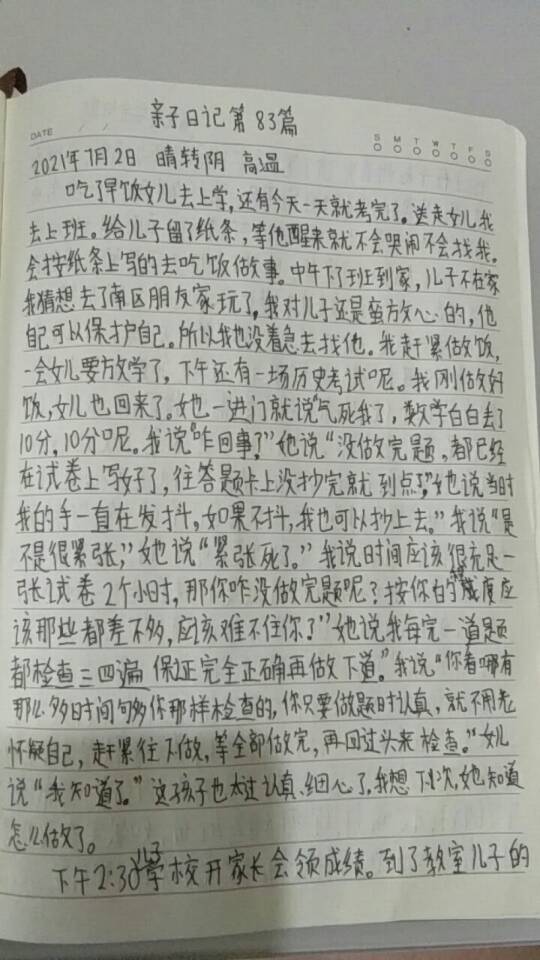 亲子日记第83篇
DATE / /
S M T W T F S
2021年7月2日 晴转阴 高温
吃了早饭女儿去上学,还有今天一天就考完了。送走女儿我
去上班。给儿子留了纸条,等他醒来就不会哭闹不会找我。
会按纸条上写的去吃饭做事。中午下了班到家,儿子不在家
我猜想去了南区朋友家玩了。我对儿子还是蛮放心的,他
自己可以保护自己。所以我也没着急去找他。我赶紧做饭,
一会女儿要放学了,下午还有一场历史考试呢。我刚做好
饭,女儿也回来了。她一进门就说“气死我了,数学白白丢了
10分,10分呢。我说“咋回事?”她说“没做完题,都已经
在试卷上写好了,往答题卡上没抄完就到点了。”她说当时
我的手一直在发抖,如果不抖,我也可以抄上去。”我说“是
不是很紧张,”她说“紧张死了。”我说时间应该很充足一
张试卷2个小时,那你咋没做完题呢?按你自的成度应
该那些都差不多,应该难不住你了”她说我每完一道题
都检查三四遍 保证完全正确再做下道。”我说“你看哪有
那么多时间够你那样检查的,你只要做题时认真,就不用老
怀疑自己,赶紧往下做,等全部做完,再回过头来检查。”女儿
说“我知道了。”这孩子也太过认真、细心了,我想下次,她知道
怎么做了。
下午2:30儿子学校开家长会领成绩。到了教室儿子的